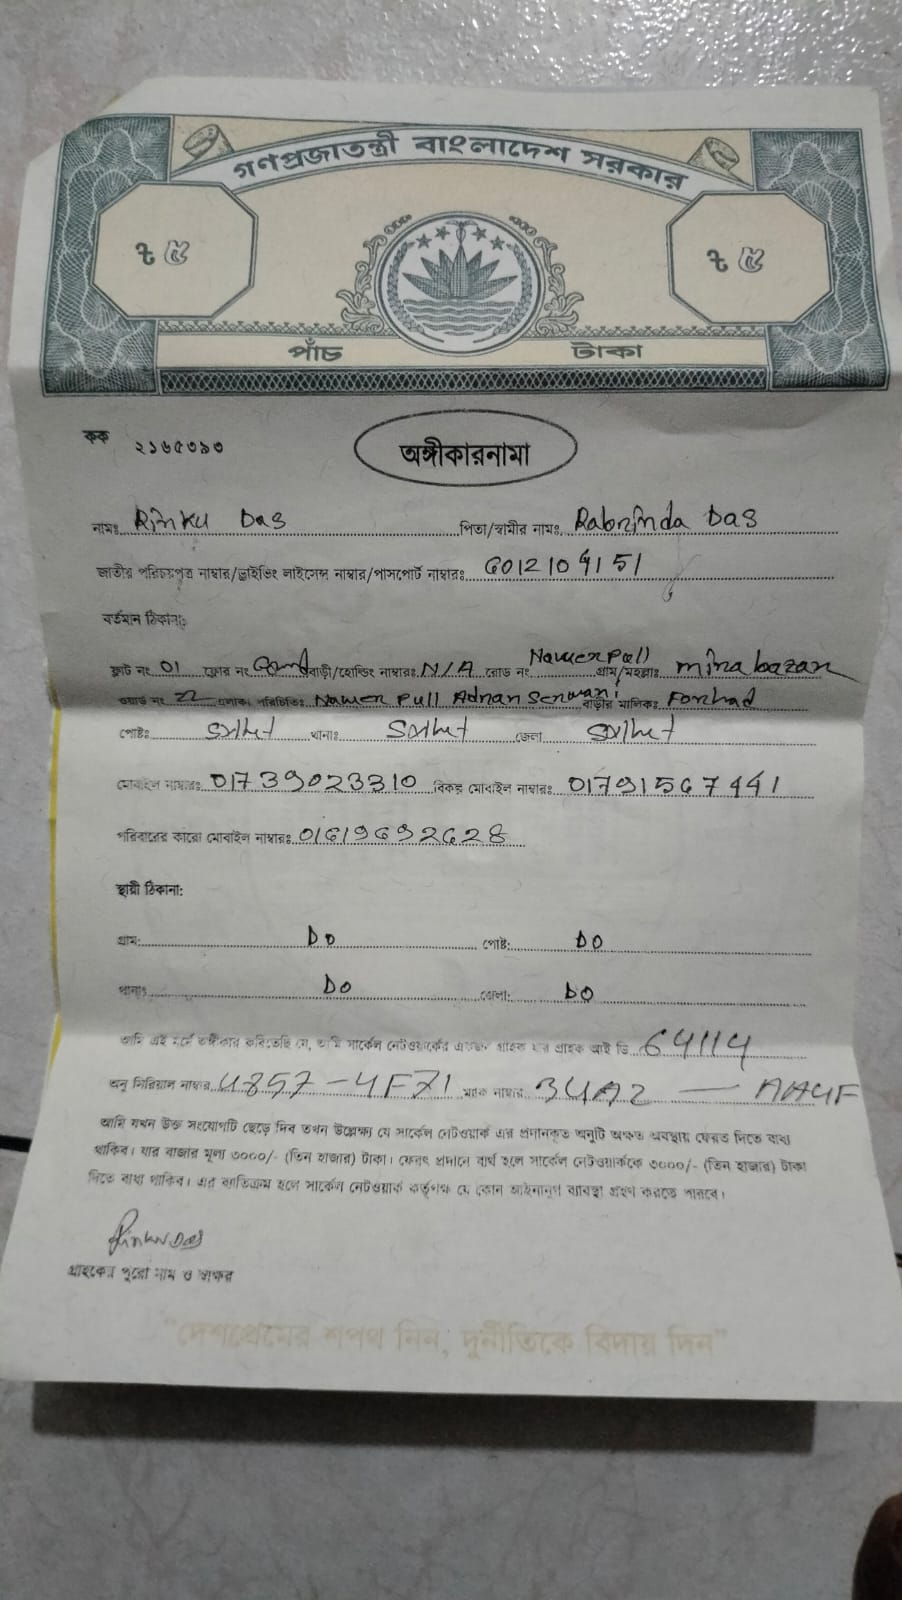 গণপ্রজাতন্ত্রী বাংলাদেশ সরকার
৳ ৫ ৳ ৫
পাঁচ টাকা
কক ২১৬৫৩৯৩
অঙ্গীকারনামা
নামঃ Rinku Das পিতা/স্বামীর নামঃ Rabrinda Das
জাতীয় পরিচয়পত্র নাম্বার/ড্রাইভিং লাইসেন্স নাম্বার/পাসপোর্ট নাম্বারঃ 6012104151
বর্তমান ঠিকানাঃ
ফ্লাট নং 01 ফ্লোর নং বাড়ী/হোল্ডিং নাম্বারঃ N/A রোড নং গ্রাম/মহল্লাঃ mirabazar
ওয়ার্ড নং 22 এলাকা পরিচিতিঃ Adnan বাড়ীর মালিকঃ Forhad
পোষ্টঃ Sylhet থানাঃ Sylhet জেলা Sylhet
মোবাইল নাম্বারঃ 01739023310 বিকল্প মোবাইল নাম্বারঃ 01791567441
পরিবারের কারো মোবাইল নাম্বারঃ 01619692628
স্থায়ী ঠিকানা:
গ্রাম: DO পোষ্ট: DO
থানাঃ DO জেলা: DO
আমি এই মর্মে অঙ্গীকার করিতেছি যে, আমি সার্কেল নেটওয়ার্কের একজন গ্রাহক যার গ্রাহক আই ডি 64114
অনু সিরিয়াল নাম্বার 4857-4F71 ম্যাক নাম্বার 34A2 — AA4F
আমি যখন উক্ত সংযোগটি ছেড়ে দিব তখন উল্লেক্ষ্য যে সার্কেল নেটওয়ার্ক এর প্রদানকৃত অনুটি অক্ষত অবস্থায় ফেরত দিতে বাধ্য
থাকিব। যার বাজার মূল্য ৩০০০/- (তিন হাজার) টাকা। ফেরৎ প্রদানে ব্যর্থ হলে সার্কেল নেটওয়ার্ককে ৩০০০/- (তিন হাজার) টাকা
দিতে বাধ্য থাকিব। এর ব্যতিক্রম হলে সার্কেল নেটওয়ার্ক কর্তৃপক্ষ যে কোন আইনানুগ ব্যাবস্থা গ্রহণ করতে পারবে।
Rinku Das
গ্রাহকের পুরো নাম ও স্বাক্ষর
"দেশপ্রেমের শপথ নিন, দুর্নীতিকে বিদায় দিন"